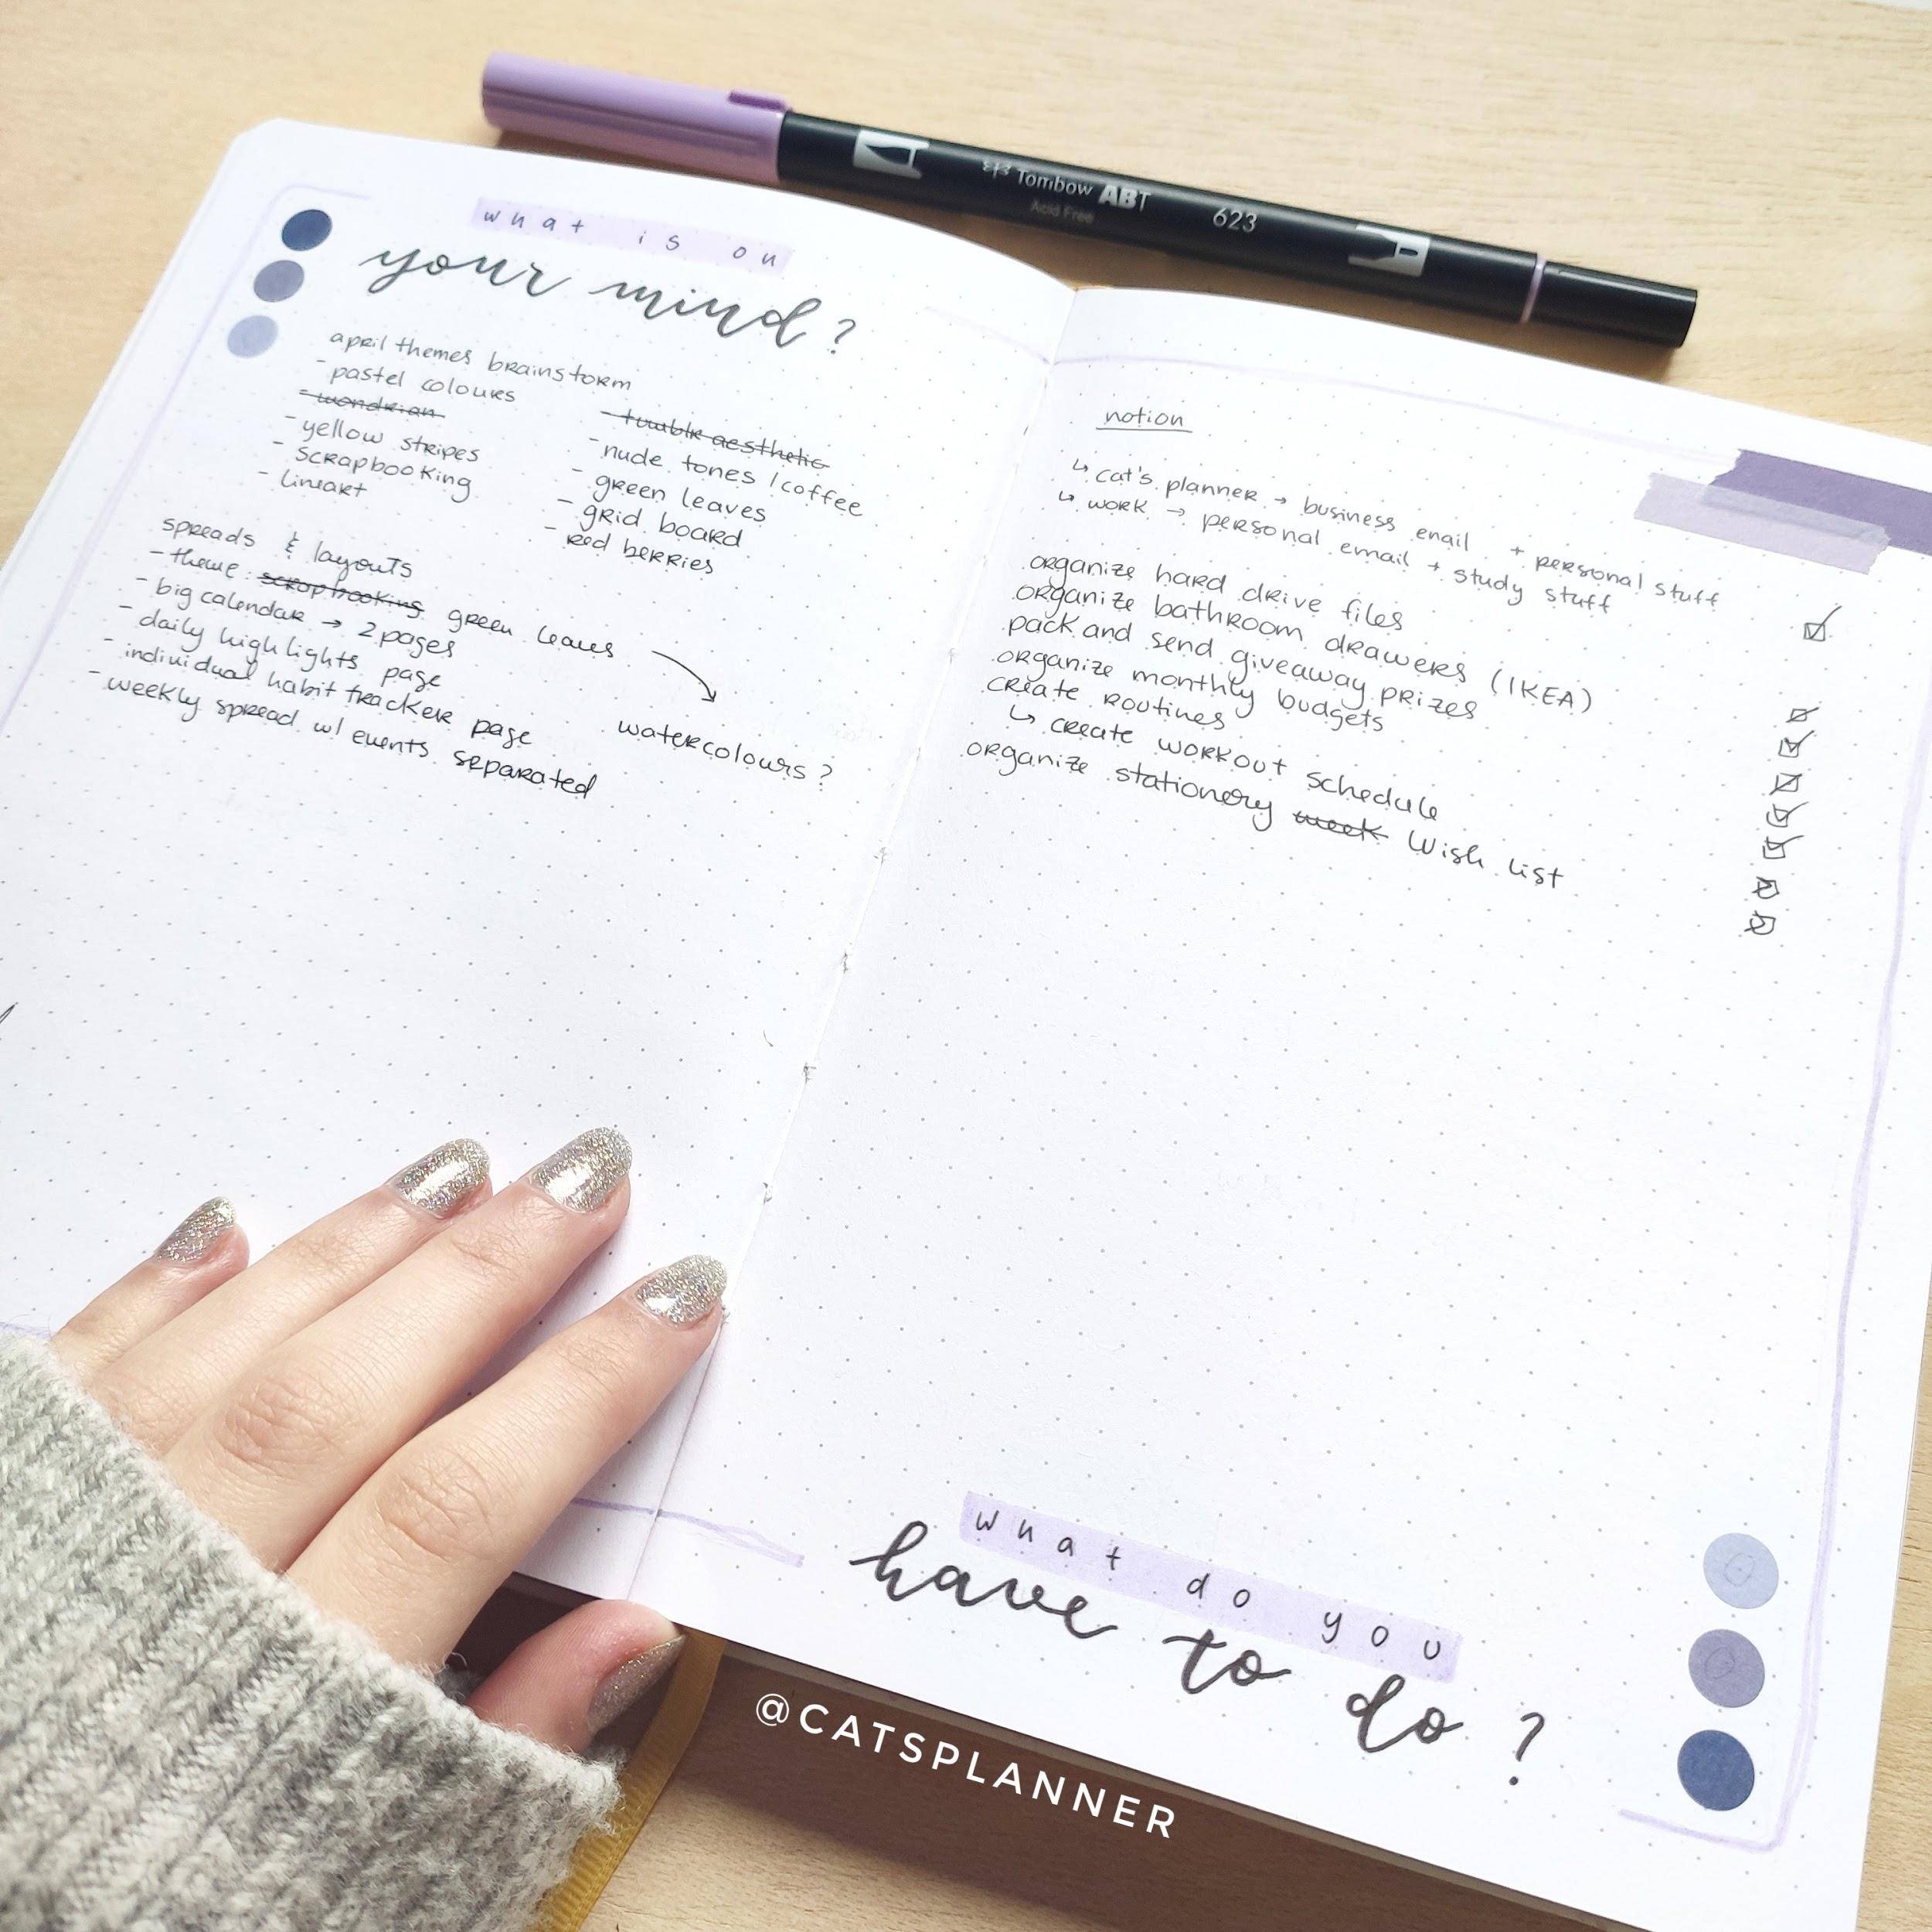 Tombow ABT 623
Acid Free
what is on
your mind?
april themes brainstorm
- pastel colours
- wondrian
- yellow stripes
- scrapbooking
- lineart
- tumblr aesthetic
- nude tones / coffee
- green leaves
- grid board
- red berries
spreads & layouts
- theme: scrapbooking green leaves
- big calendar → 2 pages
- daily highlights page
- individual habit tracker page
- weekly spread w/ events separated
watercolours?
notion
↳ cat's planner → business enail + personal stuff
↳ work → personal email + study stuff
organize hard drive files
organize bathroom drawers (IKEA)
pack and send giveaway prizes
organize monthly budgets
create routines
↳ create workout schedule
organize stationery week Wish list
what do you
have to do?
@CATSPLANNER